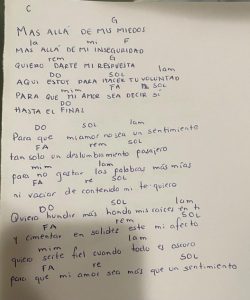 C
G
MAS ALLÁ DE MIS MIEDOS
la mi F
MAS ALLÁ DE MI INSEGURIDAD
rem G
QUIERO DARTE MI RESPUESTA
DO SOL lam
AQUI ESTOY PARA HACER TU VOLUNTAD
mim FA SOL
PARA QUE MI AMOR SEA DECIR SÍ
DO
HASTA EL FINAL
DO SOL lam
Para que mi amor no sea un sentimiento
FA rem SOL
tan solo un deslumbramiento pasajero
mim lam
para no gastar las palabras más mías
FA re SOL
ni vaciar de contenido mi te quiero
DO SOL lam
Quiero hundir más hondo mis raíces en ti
FA rem SOL
y cimentar en solidez este mi afecto
mim lam
quiero serte fiel cuando todo es oscuro
FA re SOL
para que mi amor sea más que un sentimiento